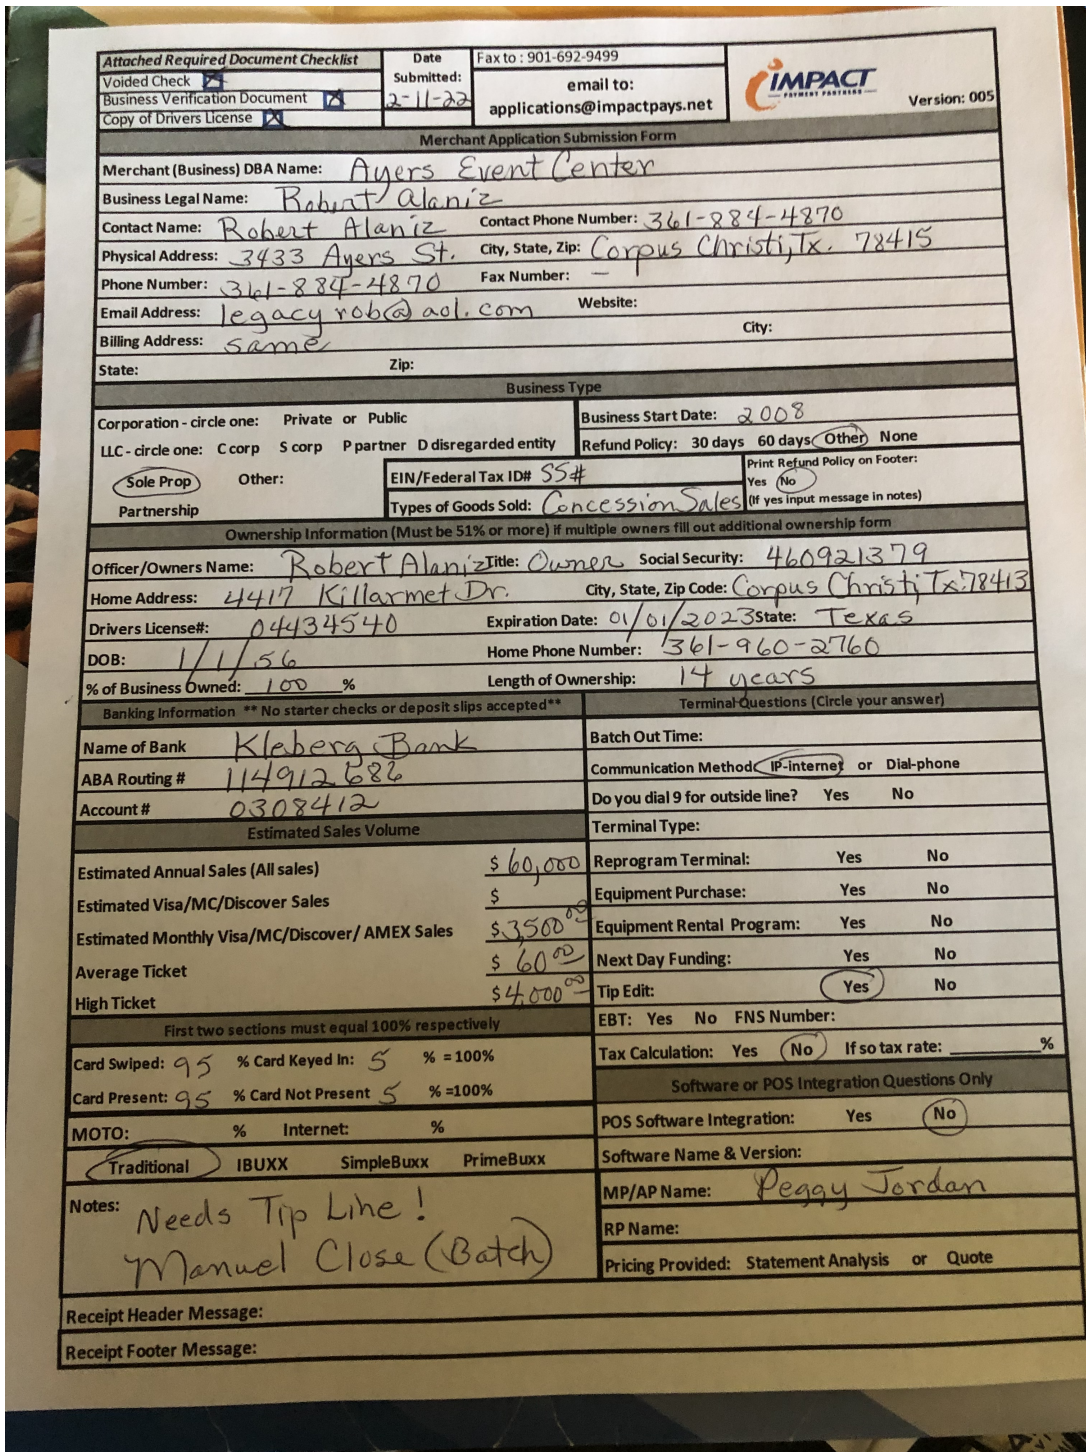 Attached Required Document Checklist
Voided Check
Business Verification Document
Copy of Drivers License
Date
Submitted:
2-11-22
Fax to : 901-692-9499
email to:
applications@impactpays.net
IMPACT
PAYMENT PARTNERS
Version: 005
Merchant Application Submission Form
Merchant (Business) DBA Name: Ayers Event Center
Business Legal Name: Robert Alaniz
Contact Name: Robert Alaniz Contact Phone Number: 361-884-4870
Physical Address: 3433 Ayers St. City, State, Zip: Corpus Christi, Tx. 78415
Phone Number: 361-884-4870 Fax Number: —
Email Address: legacyrob@aol.com Website:
Billing Address: same City:
State: Zip:
Business Type
Corporation - circle one: Private or Public
LLC - circle one: C corp S corp P partner D disregarded entity
Sole Prop Other:
Partnership
Business Start Date: 2008
Refund Policy: 30 days 60 days Other None
EIN/Federal Tax ID# SS#
Types of Goods Sold: Concession Sales
Print Refund Policy on Footer:
Yes No
(If yes input message in notes)
Ownership Information (Must be 51% or more) if multiple owners fill out additional ownership form
Officer/Owners Name: Robert Alaniz Title: Owner Social Security: 460921379
Home Address: 4417 Killarmet Dr. City, State, Zip Code: Corpus Christi, Tx. 78413
Drivers License#: 04434540 Expiration Date: 01/01/2023 State: Texas
DOB: 1/1/56 Home Phone Number: 361-960-2760
% of Business Owned: 100 % Length of Ownership: 14 years
Banking Information ** No starter checks or deposit slips accepted**
Name of Bank Kleberg Bank
ABA Routing # 114912686
Account # 0308412
Estimated Sales Volume
Estimated Annual Sales (All sales) $ 60,000
Estimated Visa/MC/Discover Sales $
Estimated Monthly Visa/MC/Discover/ AMEX Sales $3,500.00
Average Ticket $ 60.00
High Ticket $4,000.00
First two sections must equal 100% respectively
Card Swiped: 95 % Card Keyed In: 5 % = 100%
Card Present: 95 % Card Not Present 5 % =100%
MOTO: % Internet: %
Traditional IBUXX SimpleBuxx PrimeBuxx
Notes: Needs Tip Line!
Manuel Close (Batch)
Terminal Questions (Circle your answer)
Batch Out Time:
Communication Method: IP-internet or Dial-phone
Do you dial 9 for outside line? Yes No
Terminal Type:
Reprogram Terminal: Yes No
Equipment Purchase: Yes No
Equipment Rental Program: Yes No
Next Day Funding: Yes No
Tip Edit: Yes No
EBT: Yes No FNS Number:
Tax Calculation: Yes No If so tax rate: ________%
Software or POS Integration Questions Only
POS Software Integration: Yes No
Software Name & Version:
MP/AP Name: Peggy Jordan
RP Name:
Pricing Provided: Statement Analysis or Quote
Receipt Header Message:
Receipt Footer Message: